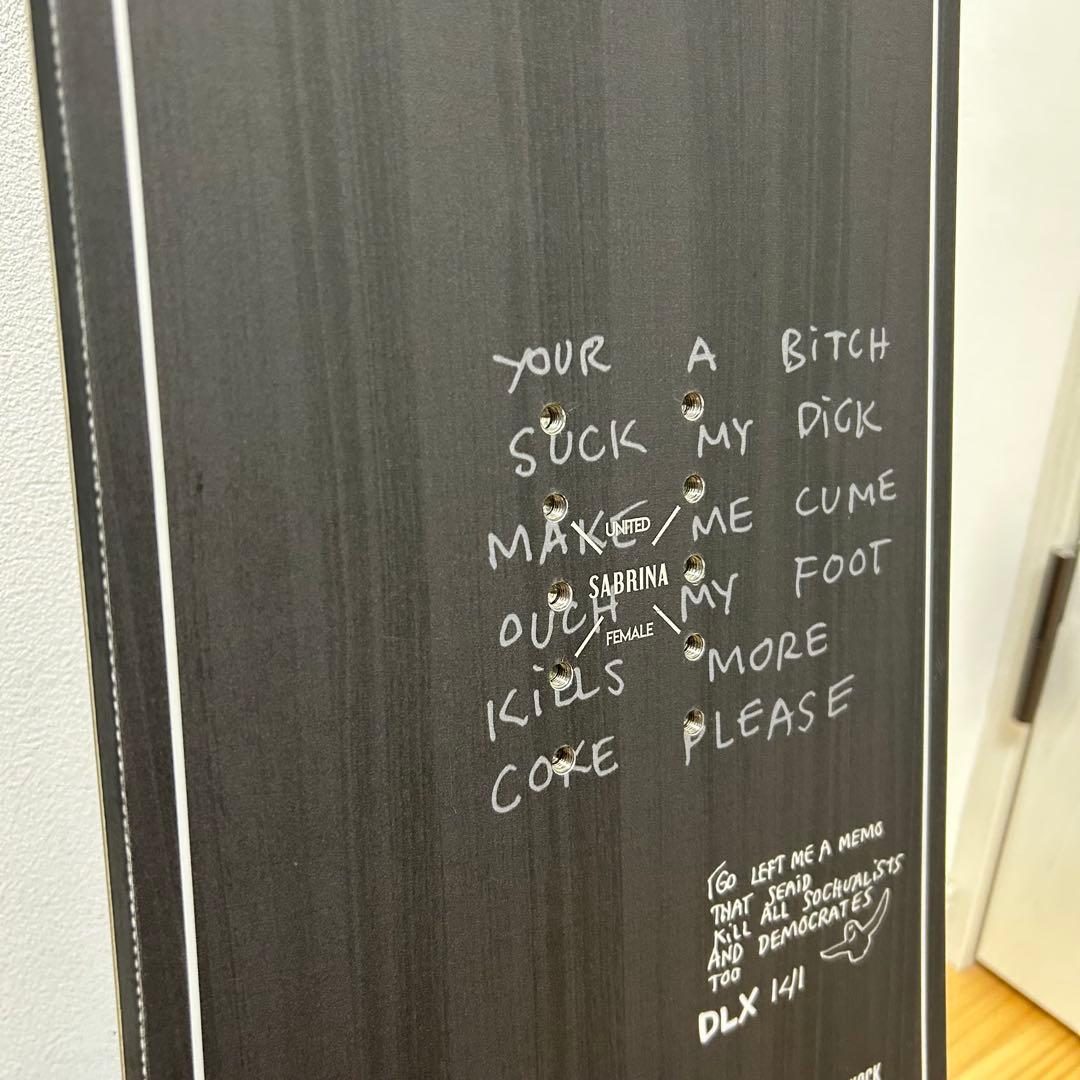 YOUR A BiTCH
SUCK MY DiCK
MAKE ME CUME
UNITED
SABRINA
OUCH MY FOOT
FEMALE
KiLLS MORE
COKE PLEASE
GO LEFT ME A MEMO
THAT SEAiD
KiLL ALL SOCHUALiSTS
AND DEMOCRATES
TOO
DLX 141